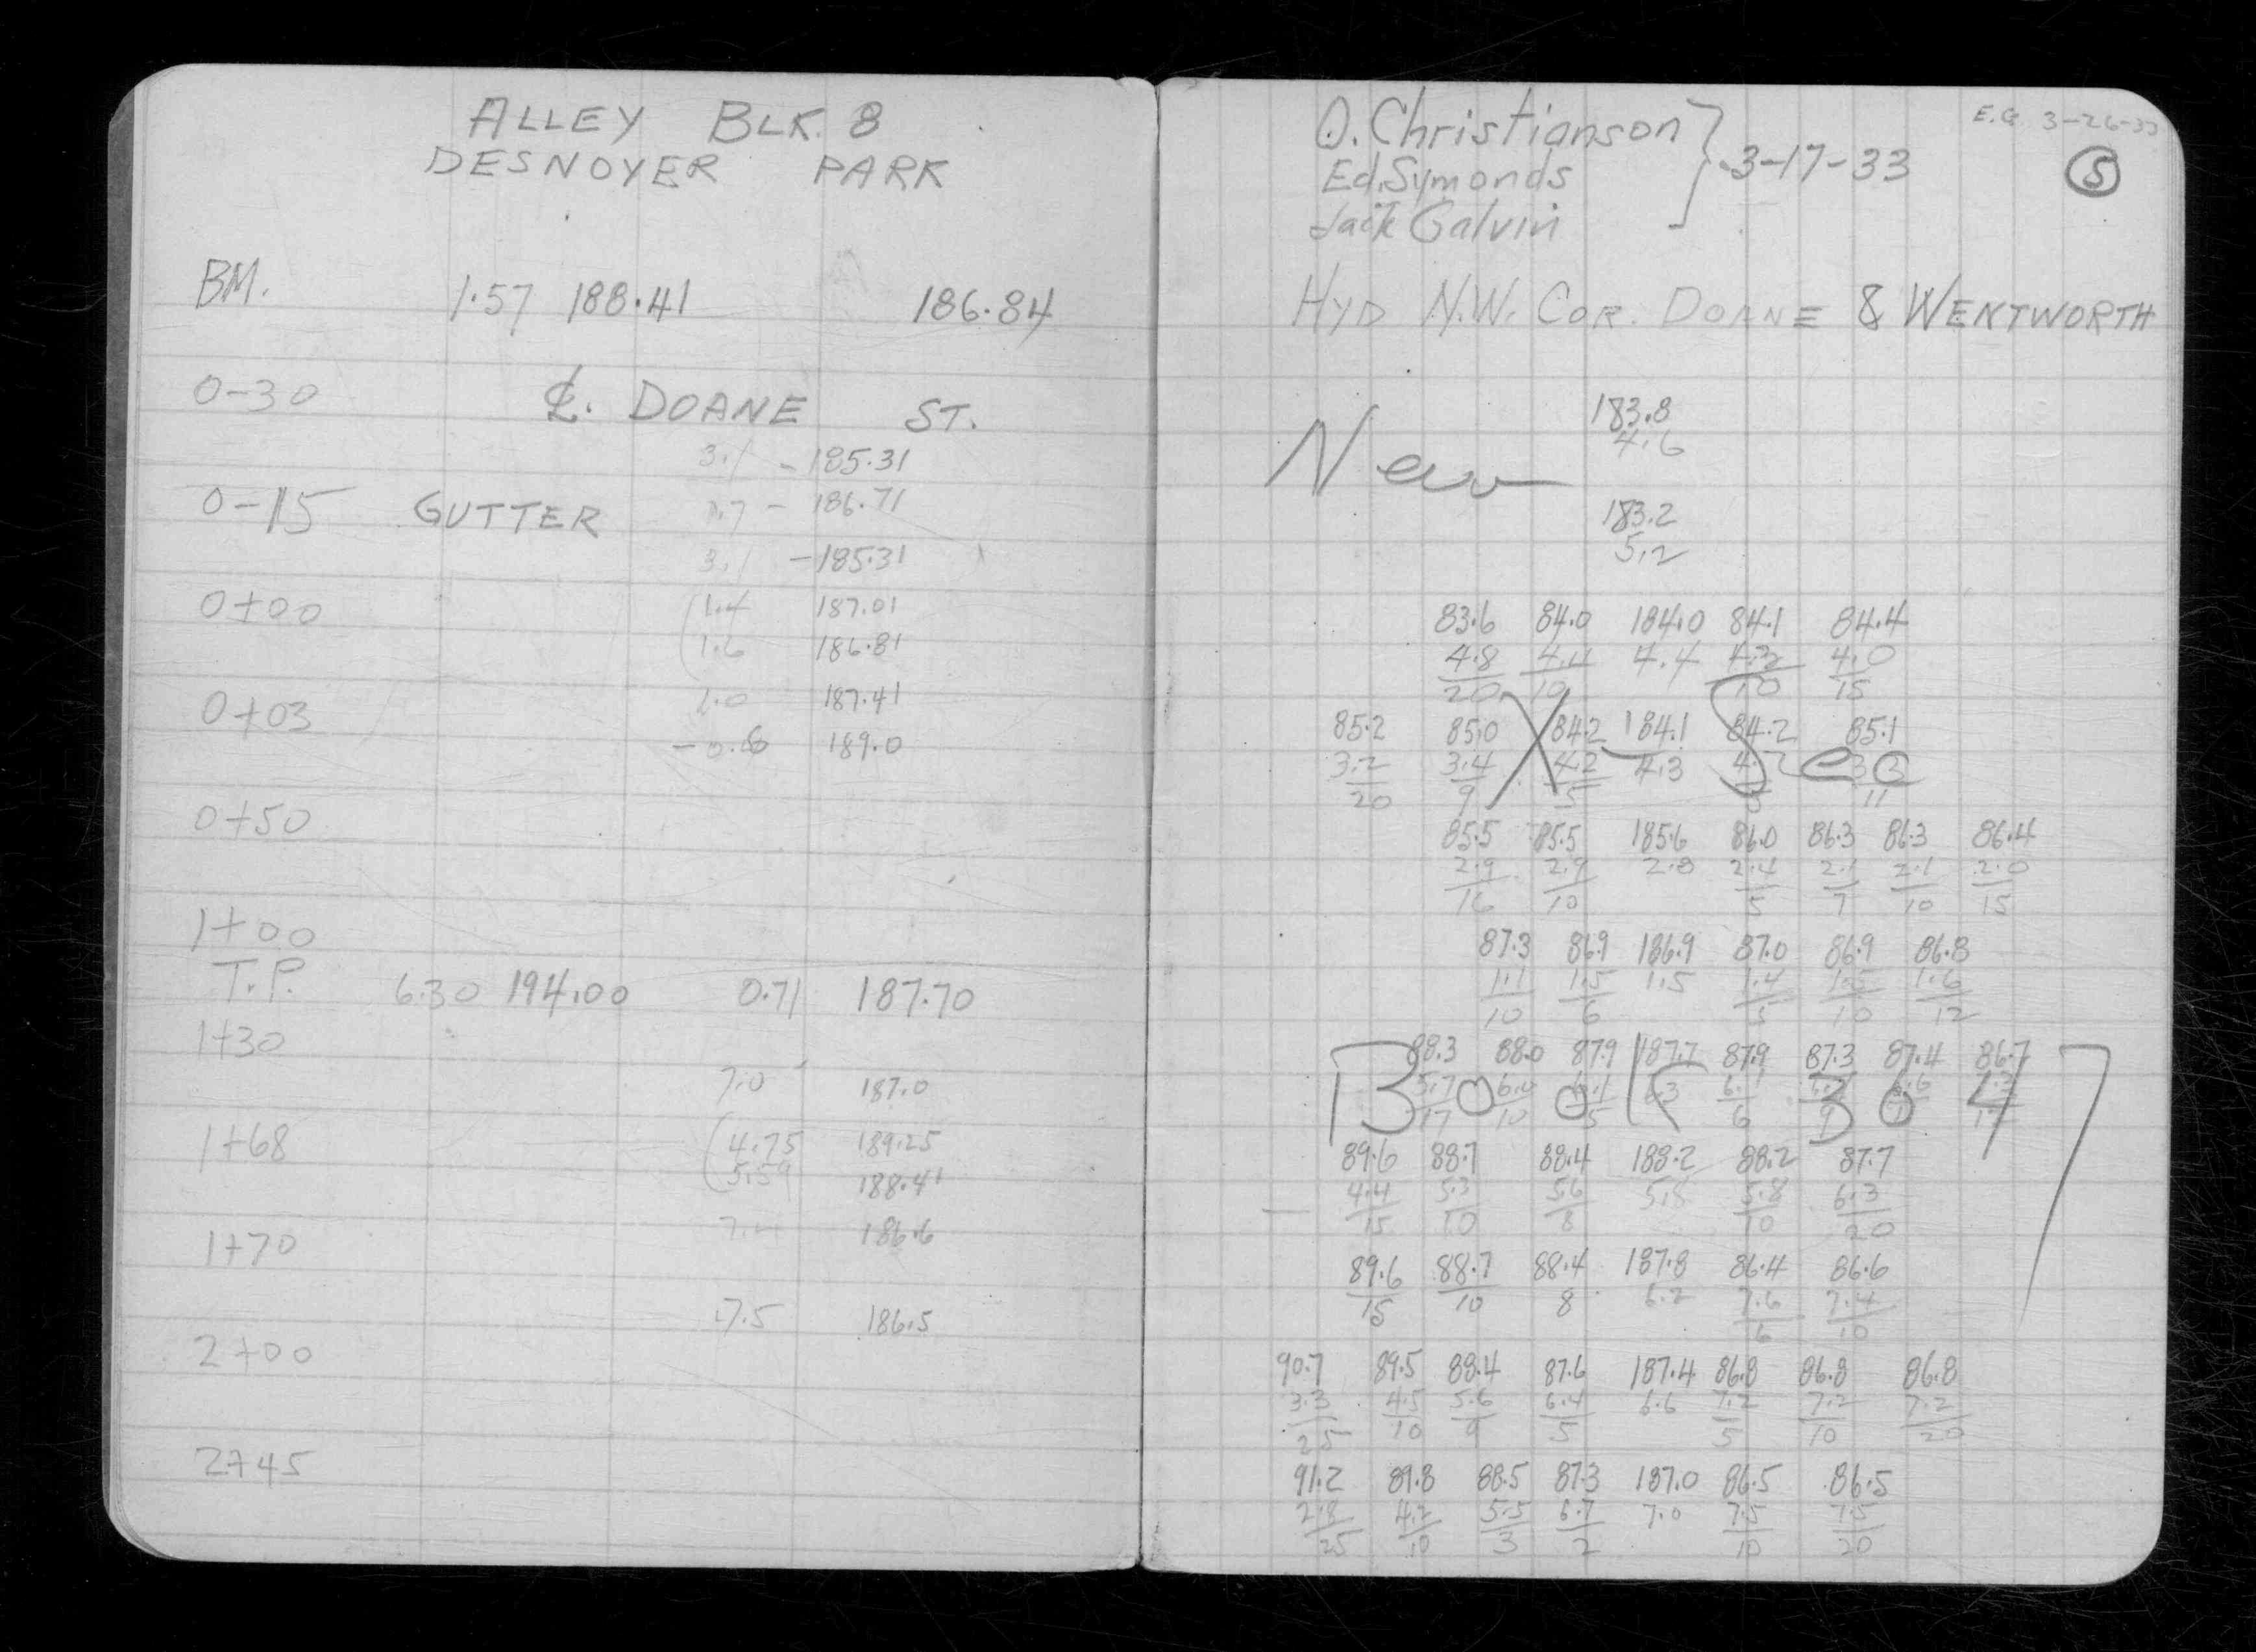 ALLEY BLK. 8
DESNOYER PARK
BM. 1.57 188.41 186.84
0-30 ℄. DOANE ST.
3.1 - 185.31
0-15 GUTTER 1.7 - 186.71
3.1 - 185.31
0+00 (1.4 187.01
1.6 186.81
0+03 1.0 187.41
-0.6 189.0
0+50
1+00
T.P. 6.30 194.00 0.71 187.70
1+30
7.0 187.0
1+68 (4.75 189.25
5.59 188.41
1+70 7.4 186.6
7.5 186.5
2+00
2+45
O. Christianson
Ed. Symonds
Jack Galvin
} 3-17-33
E.G. 3-26-33
5
HYD N.W. COR. DOANE & WENTWORTH
New
183.8
4.6
183.2
5.2
83.6 84.0 184.0 84.1 84.4
4.8 4.4 4.4 4.3 4.0
20 10 10 15
X-Sec
85.2 85.0 84.2 184.1 84.2 85.1
3.2 3.4 4.2 4.3 4.2 3.3
20 9 5 5 11
85.5 85.5 185.6 86.0 86.3 86.3 86.4
2.9 2.9 2.8 2.4 2.1 2.1 2.0
16 10 5 7 10 15
87.3 86.9 186.9 87.0 86.9 86.8
1.1 1.5 1.5 1.4 1.5 1.6
10 6 5 10 12
Book 3047
88.3 88.0 87.9 187.7 87.9 87.3 87.4 86.7
5.7 6.0 6.1 6.3 6.1 6.6
17 10 5 6 9
89.6 88.7 88.4 188.2 88.2 87.7
4.4 5.3 5.6 5.8 5.8 6.3
15 10 8 10 20
89.6 88.7 88.4 187.8 86.4 86.6
15 10 8 6.2 7.6 7.4
6 10
90.7 89.5 88.4 87.6 187.4 86.8 86.8 86.8
3.3 4.5 5.6 6.4 6.6 7.2 7.2 7.2
25 10 9 5 5 10 20
91.2 89.8 88.5 87.3 187.0 86.5 86.5
2.8 4.2 5.5 6.7 7.0 7.5 7.5
25 10 3 2 10 20